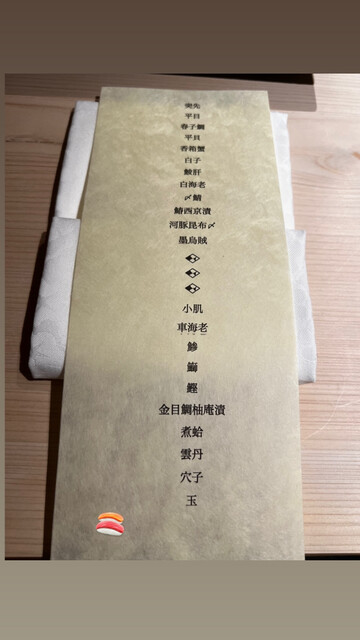 突先
平目
春子鯛
平貝
香箱蟹
白子
鮟肝
白海老
〆鯖
鰆西京漬
河豚昆布〆
墨烏賊
小肌
車海老
鰺
鰤
鰹
金目鯛柚庵漬
煮蛤
雲丹
穴子
玉